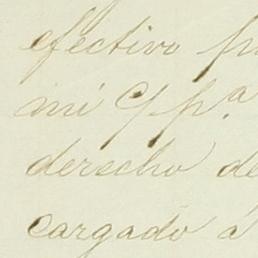 efectivo
mi C/ p.ª
derecho de
cargado á